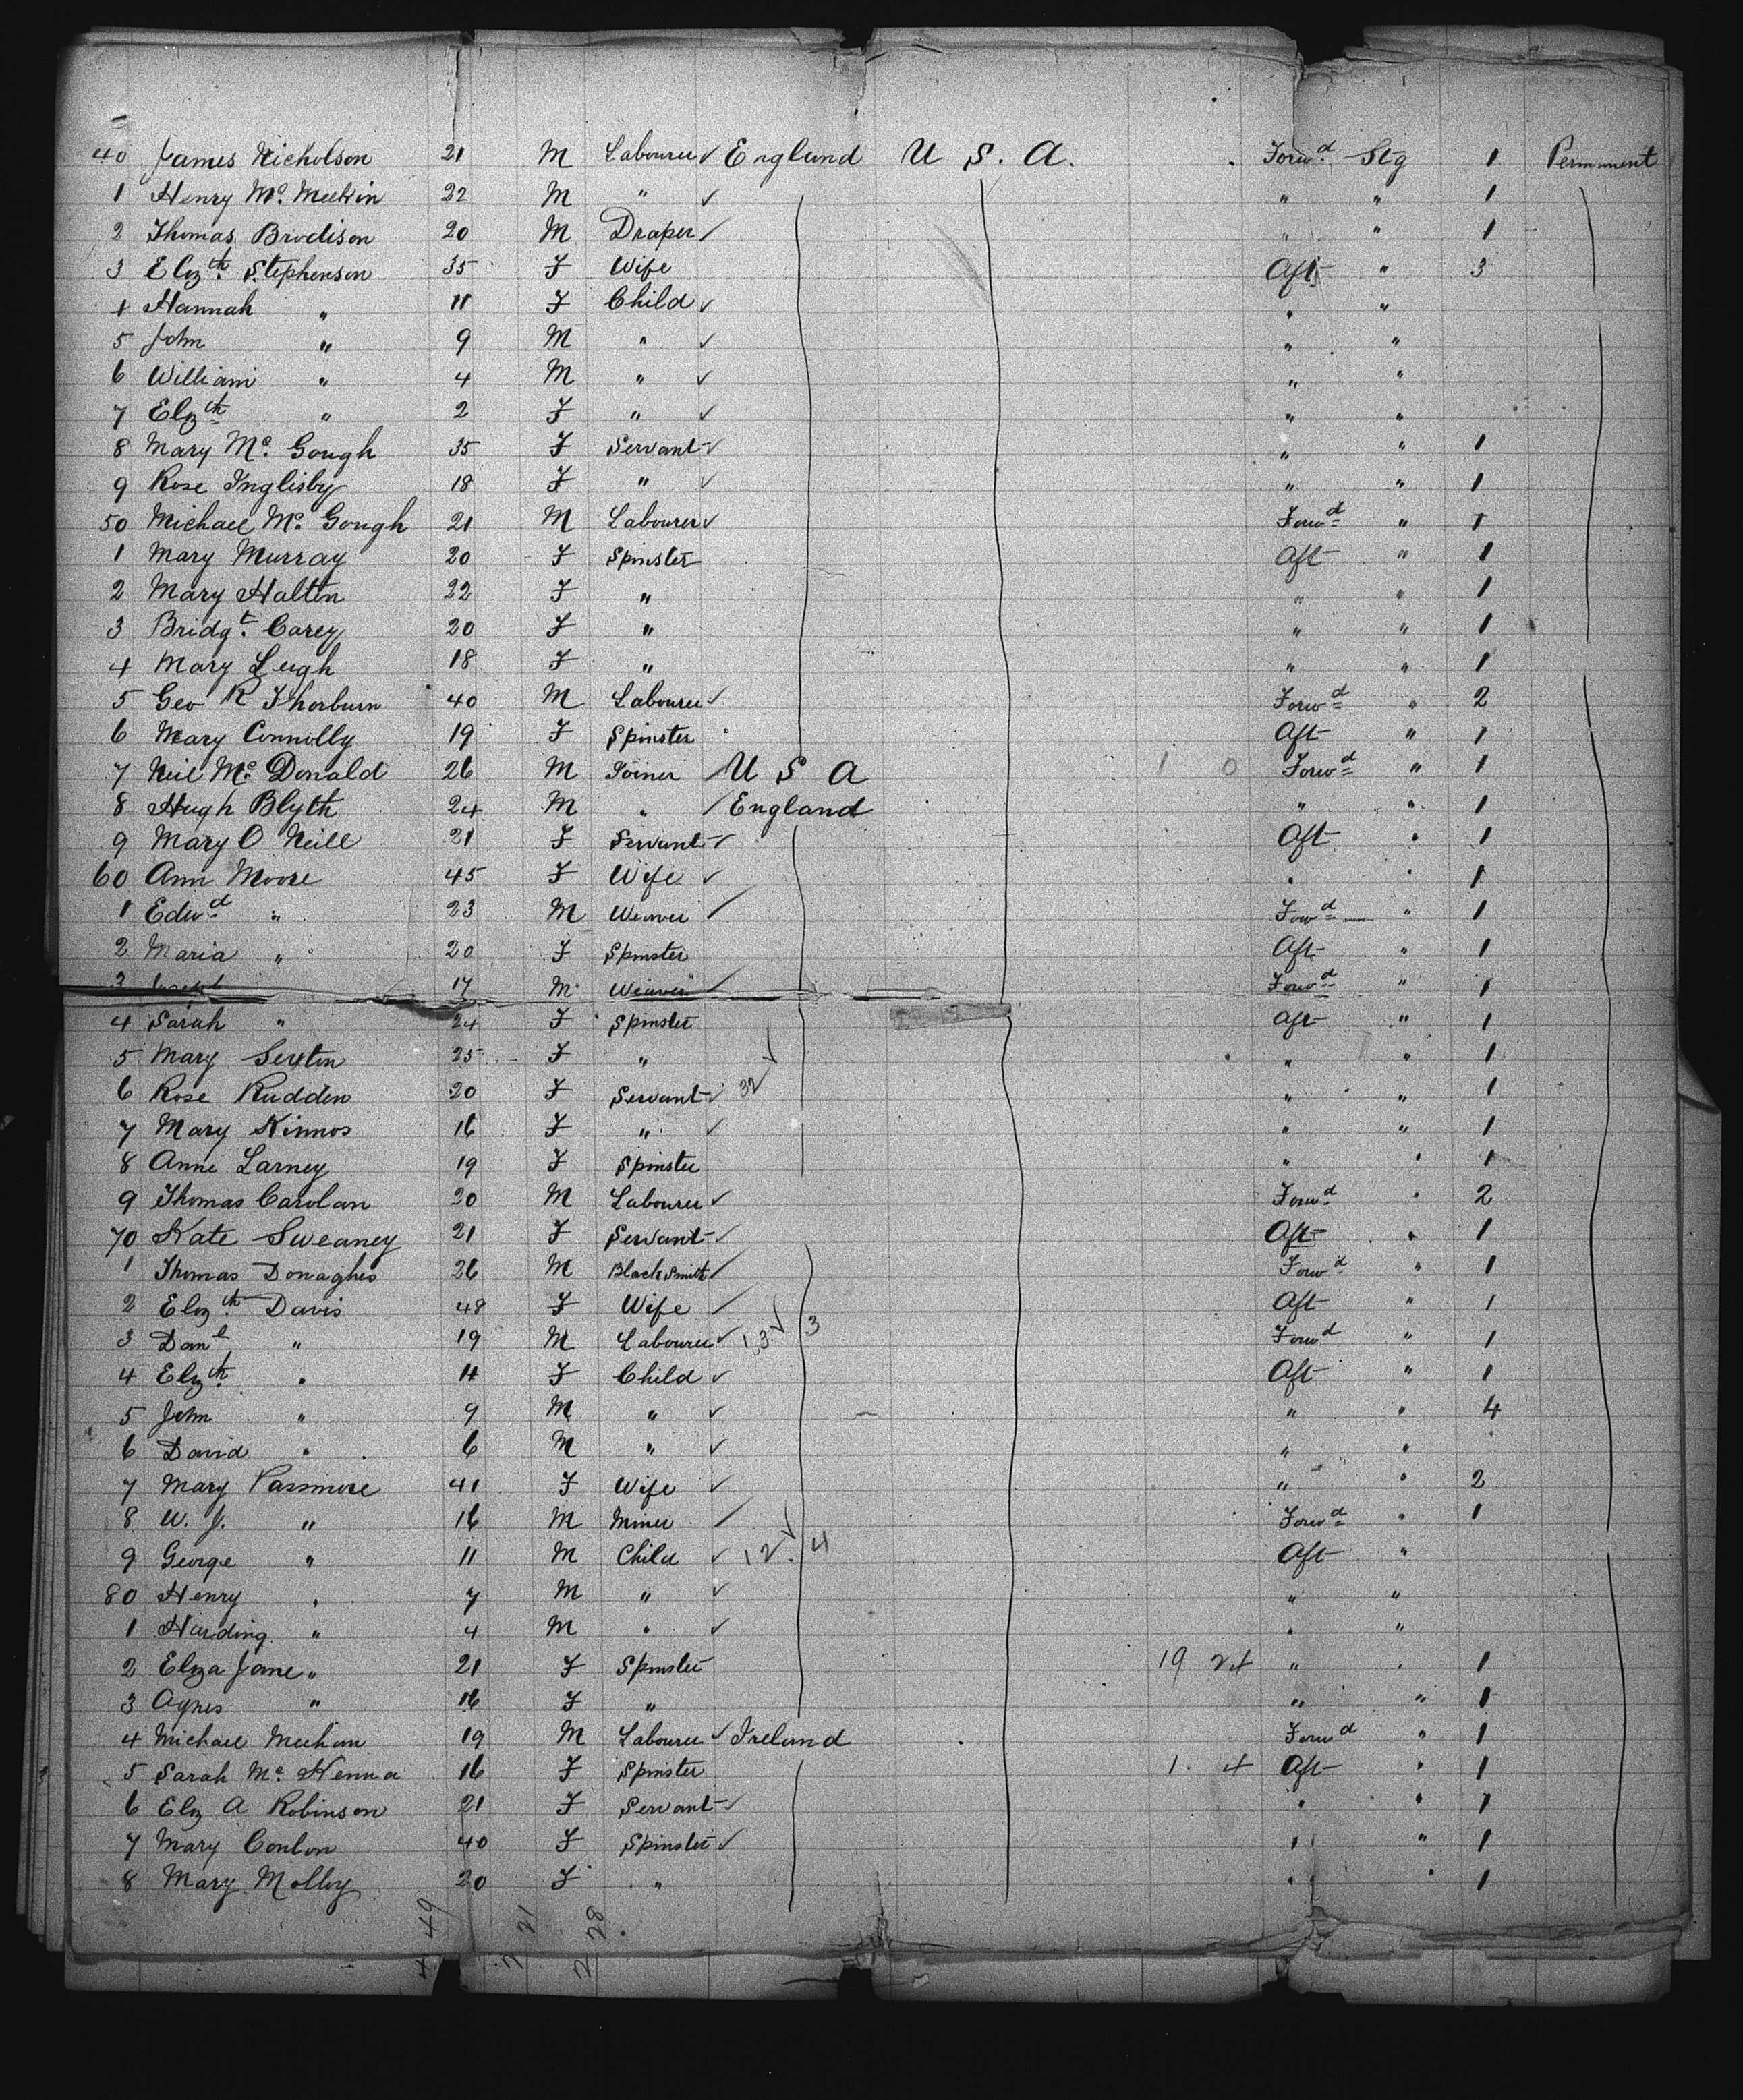 40 James Nicholson 21 M Labourer England U. S. A. Forwd Stg 1 Permanent
1 Henry Mc Meekin 22 M " " " 1
2 Thomas Brodison 20 M Draper " " 1
3 Elizth Stephenson 35 F Wife Aft " 3
4 Hannah " 11 F Child " "
5 John " 9 M " " "
6 William " 4 M " " "
7 Elizth " 2 F " " "
8 Mary Mc Gough 35 F Servant " " 1
9 Rose Inglisby 18 F " " " 1
50 Michael Mc Gough 21 M Labourer Forwd " 1
1 Mary Murray 20 F Spinster Aft " 1
2 Mary Halten 22 F " " " 1
3 Bridgt Carey 20 F " " " 1
4 Mary Leigh 18 F " " " 1
5 Geo R Thorburn 40 M Labourer Forwd " 2
6 Mary Connolly 19 F Spinster Aft " 1
7 Neil Mc Donald 26 M Joiner U S A 1 0 Forwd " 1
8 Hugh Blyth 24 M " England " " 1
9 Mary O Neill 21 F Servant Aft " 1
60 Ann Moore 45 F Wife " " 1
1 Edwd " 23 M Weaver Fowd " 1
2 Maria " 20 F Spinster Aft " 1
3 17 M Weaver Forwd " 1
4 Sarah " 24 F Spinster Aft " 1
5 Mary Sexton 25 F " " " 1
6 Rose Rudden 20 F Servant 32 " " 1
7 Mary Kinnos 16 F " " " 1
8 Anne Larney 19 F Spinster " " 1
9 Thomas Carolan 20 M Labourer Forwd " 2
70 Kate Sweaney 21 F Servant Aft " 1
1 Thomas Donaghes 26 M BlackSmith Forwd " 1
2 Elizth Davis 48 F Wife Aft " 1
3 Danl " 19 M Labourer 13 3 Forwd " 1
4 Elizth " 11 F Child Aft " 1
5 John " 9 M " " " 4
6 David " 6 M " " "
7 Mary Passmore 41 F Wife " " 2
8 W. J. " 16 M Miner Forwd " 1
9 George " 11 M Child 12 4 Aft "
80 Henry " 7 M " " "
1 Harding " 4 M " " "
2 Eliza Jane " 21 F Spinster 19 24 " " 1
3 Agnes " 16 F " " " 1
4 Michael Meehan 19 M Labourer Ireland Forwd " 1
5 Sarah Mc Kenna 16 F Spinster 1. 4 Aft " 1
6 Eliz A Robinson 21 F Servant " " 1
7 Mary Conlon 40 F Spinster " " 1
8 Mary Molloy 20 F " " " 1
49 21 28